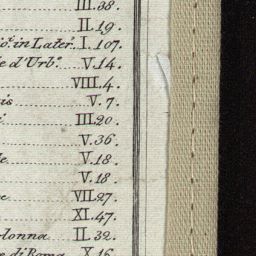 III.38.
II.19.
in Later. I. 107.
e d'Urb.º V.14.
VIII.4.
is V.7.
III.20.
V.36.
e V.18.
V.18.
e VII.27.
XI.47.
lonna II.32.
di Roma X.16.